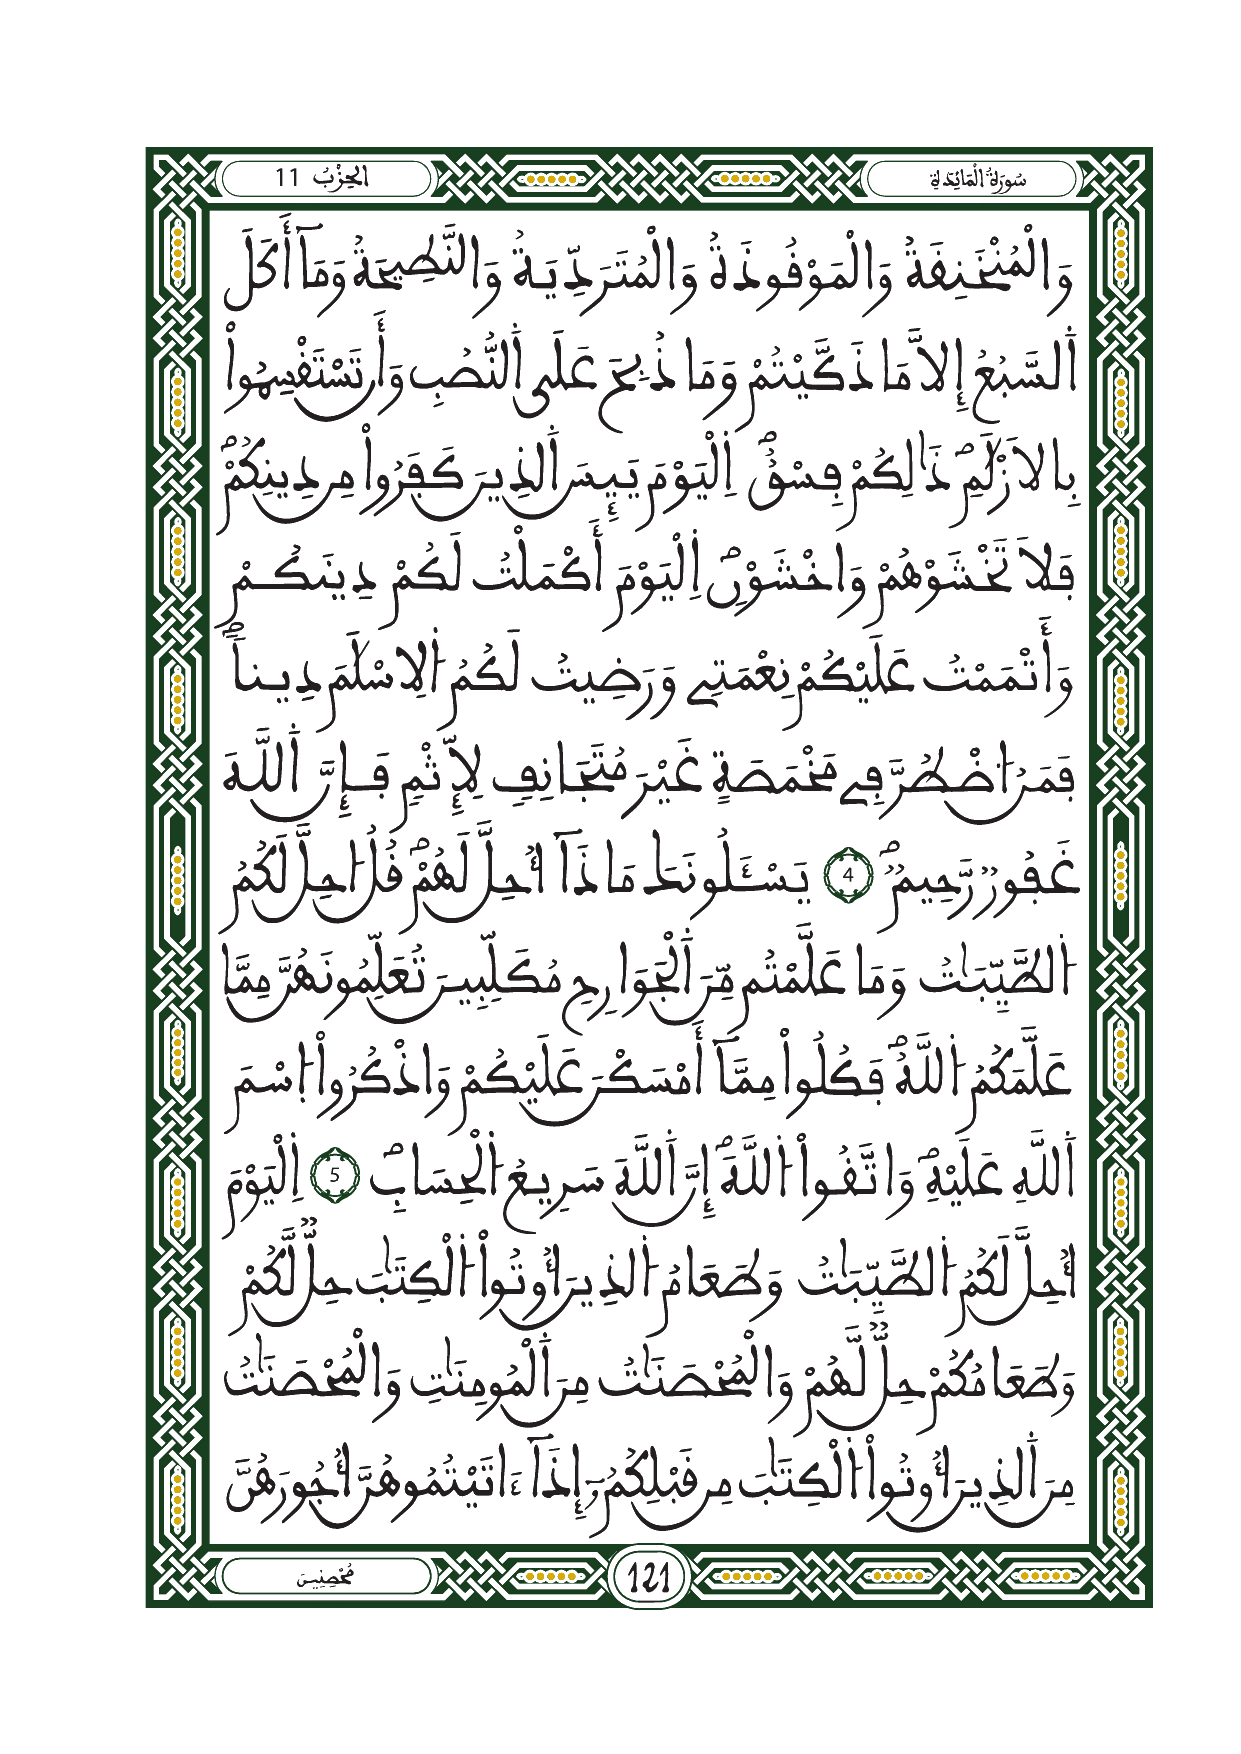 سُورَةُ الْمَائِدَةِ
الحِزْبُ 11
وَالْمُنْخَنِقَةُ وَالْمَوْقُوذَةُ وَالْمُتَرَدِّيَةُ وَالنَّطِيحَةُ وَمَآ أَكَلَ
اَ۬لسَّبُعُ إِلَّا مَا ذَكَّيْتُمْ وَمَا ذُبِحَ عَلَى اَ۬لنُّصُبِ وَأَن تَسْتَقْسِمُواْ
بِالَازْلَٰمِۖ ذَٰلِكُمْ فِسْقٌۖ اِ۬لْيَوْمَ يَئِسَ اَ۬لذِينَ كَفَرُواْ مِن دِينِكُمْۖ
فَلَا تَخْشَوْهُمْ وَاخْشَوْنِۖ اِ۬لْيَوْمَ أَكْمَلْتُ لَكُمْ دِينَكُمْ
وَأَتْمَمْتُ عَلَيْكُمْ نِعْمَتِے وَرَضِيتُ لَكُمُ اُ۬لِاسْلَٰمَ دِيناٗۖ
فَمَنُ اُ۟ضْطُرَّ فِے مَخْمَصَةٍ غَيْرَ مُتَجَانِفٖ لِّإِثْمٖ فَإِنَّ اَ۬للَّهَ
غَفُورٞ رَّحِيمٞۖ 4 يَسْـَٔلُونَكَ مَاذَآ أُحِلَّ لَهُمْۖ قُلُ اُ۟حِلَّ لَكُمُ
اُ۬لطَّيِّبَٰتُ وَمَا عَلَّمْتُم مِّنَ اَ۬لْجَوَارِحِ مُكَلِّبِينَ تُعَلِّمُونَهُنَّ مِمَّا
عَلَّمَكُمُ اُ۬للَّهُۖ فَكُلُواْ مِمَّآ أَمْسَكْنَ عَلَيْكُمْ وَاذْكُرُواْ اُ۪سْمَ
اَ۬للَّهِ عَلَيْهِۖ وَاتَّقُواْ اُ۬للَّهَۖ إِنَّ اَ۬للَّهَ سَرِيعُ اُ۬لْحِسَابِۖ 5 اِ۬لْيَوْمَ
أُحِلَّ لَكُمُ اُ۬لطَّيِّبَٰتُ وَطَعَامُ اُ۬لذِينَ أُوتُواْ اُ۬لْكِتَٰبَ حِلّٞ لَّكُمْ
وَطَعَامُكُمْ حِلّٞ لَّهُمْ وَالْمُحْصَنَٰتُ مِنَ اَ۬لْمُومِنَٰتِ وَالْمُحْصَنَٰتُ
مِنَ اَ۬لذِينَ أُوتُواْ اُ۬لْكِتَٰبَ مِن قَبْلِكُمُۥٓ إِذَآ ءَاتَيْتُمُوهُنَّ أُجُورَهُنَّ
121
مُحْصِنِينَ